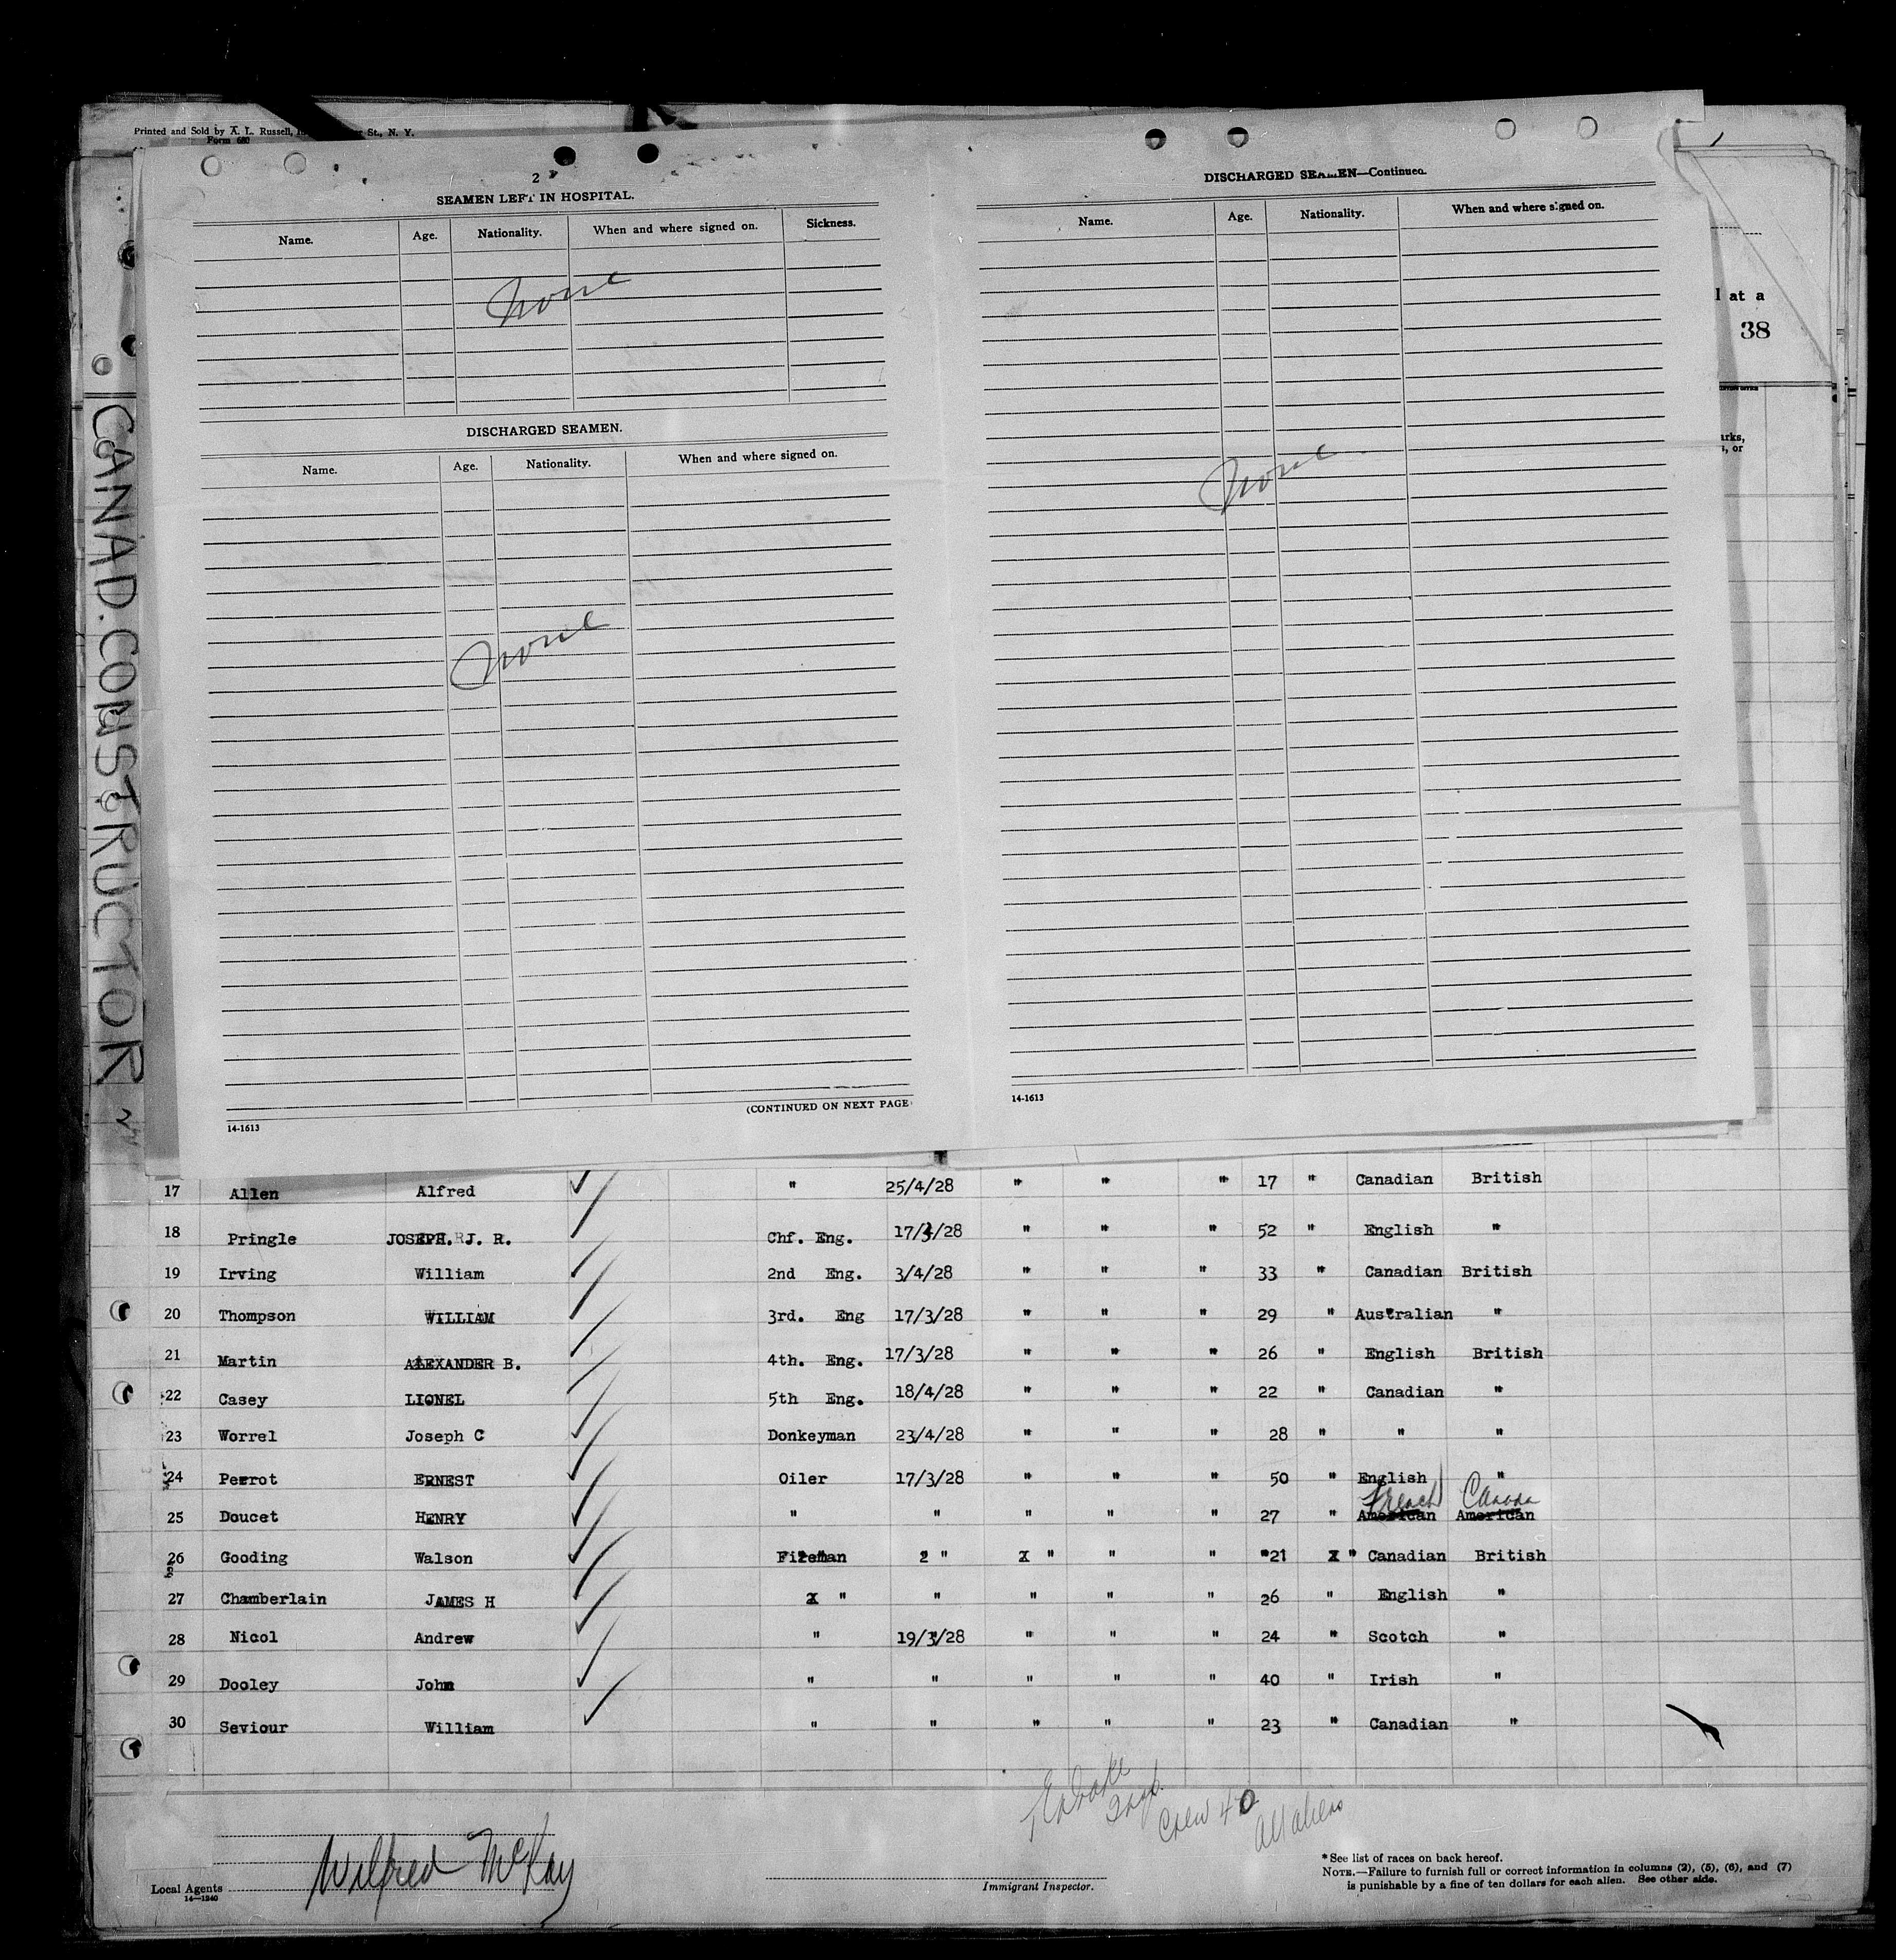 Printed and Sold by A. L. Russell, St., N. Y.
Form 680
2
SEAMEN LEFT IN HOSPITAL.
Name. Age. Nationality. When and where signed on. Sickness.
None
DISCHARGED SEAMEN.
Name. Age. Nationality. When and where signed on.
None
(CONTINUED ON NEXT PAGE
14-1613
DISCHARGED SEAMEN—Continued.
Name. Age. Nationality. When and where signed on.
None
14-1613
at a
38
or
CANAD. CONSTRUCTOR
17 Allen Alfred " 25/4/28 " " " 17 " Canadian British
18 Pringle JOSEPH. J. R. Chf. Eng. 17/3/28 " " " 52 " English "
19 Irving William 2nd Eng. 3/4/28 " " " 33 " Canadian British
20 Thompson WILLIAM 3rd. Eng 17/3/28 " " " 29 " Australian "
21 Martin ALEXANDER B. 4th. Eng. 17/3/28 " " " 26 " English British
22 Casey LIONEL 5th Eng. 18/4/28 " " " 22 " Canadian "
23 Worrel Joseph C Donkeyman 23/4/28 " " " 28 " " "
24 Perrot ERNEST Oiler 17/3/28 " " " 50 " English "
French Canada
25 Doucet HENRY " " " " " 27 " American American
26 Gooding Walson Fireman " " " " 21 " Canadian British
27 Chamberlain JAMES H " " " " " 26 " English "
28 Nicol Andrew " 19/3/28 " " " 24 " Scotch "
29 Dooley John " " " " " 40 " Irish "
30 Seviour William " " " " " 23 " Canadian "
Crew 40
All aliens
Wilfred McKay
Local Agents
14—1240
Immigrant Inspector.
*See list of races on back hereof.
NOTE.—Failure to furnish full or correct information in columns (2), (5), (6), and (7)
is punishable by a fine of ten dollars for each alien. See other side.